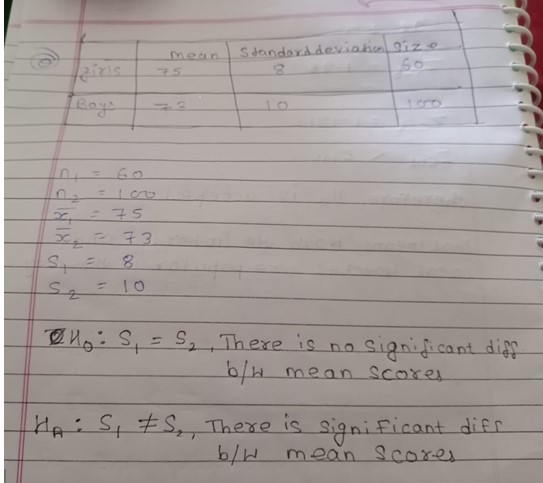 mean Standard deviation Size
girls 75 8 60
Boys 73 10 100
n₁ = 60
n₂ = 100
x̄₁ = 75
x̄₂ = 73
S₁ = 8
S₂ = 10
H₀ : S₁ = S₂, There is no significant diff
b/w mean scores
H_A : S₁ ≠ S₂, There is significant diff
b/w mean scores